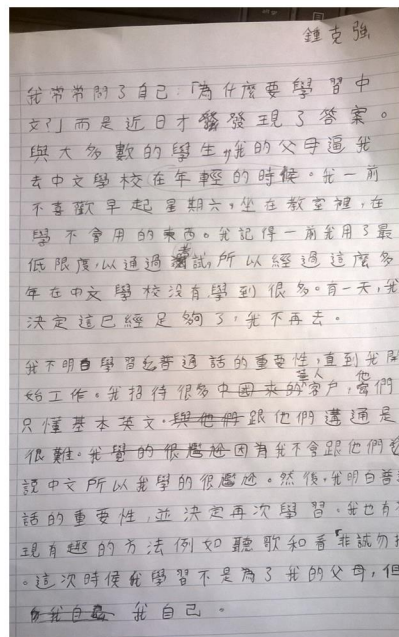 鍾克強
我常常問了自己:「為什麼要學習中
文?」而是近日才發發現了答案。
與大多數的學生,我的父母逼我
去中文學校在年輕的時候。我一前
不喜歡早起星期六,坐在教堂裡,在
學不會用的東西。我記得一前我用了最
低限度,以通過考試,所以經過這麼多
年在中文學校沒有學到很多。有一天,我
決定這已經足夠了,我不再去。
我不明白學習普通話的重要性,直到我開
始工作。我招待很多中國來的華人客户,他們
只懂基本英文,與他們跟他們溝通是
很難。我覺的很尷尬因為我不會跟他們
說中文所以我學的很尷尬。然後,我明白普
話的重要性,並決定再次學習。我也有
現有趣的方法例如聽歌和看「非誠勿
。這次時候我學習不是為了我的父母,但
我自己。